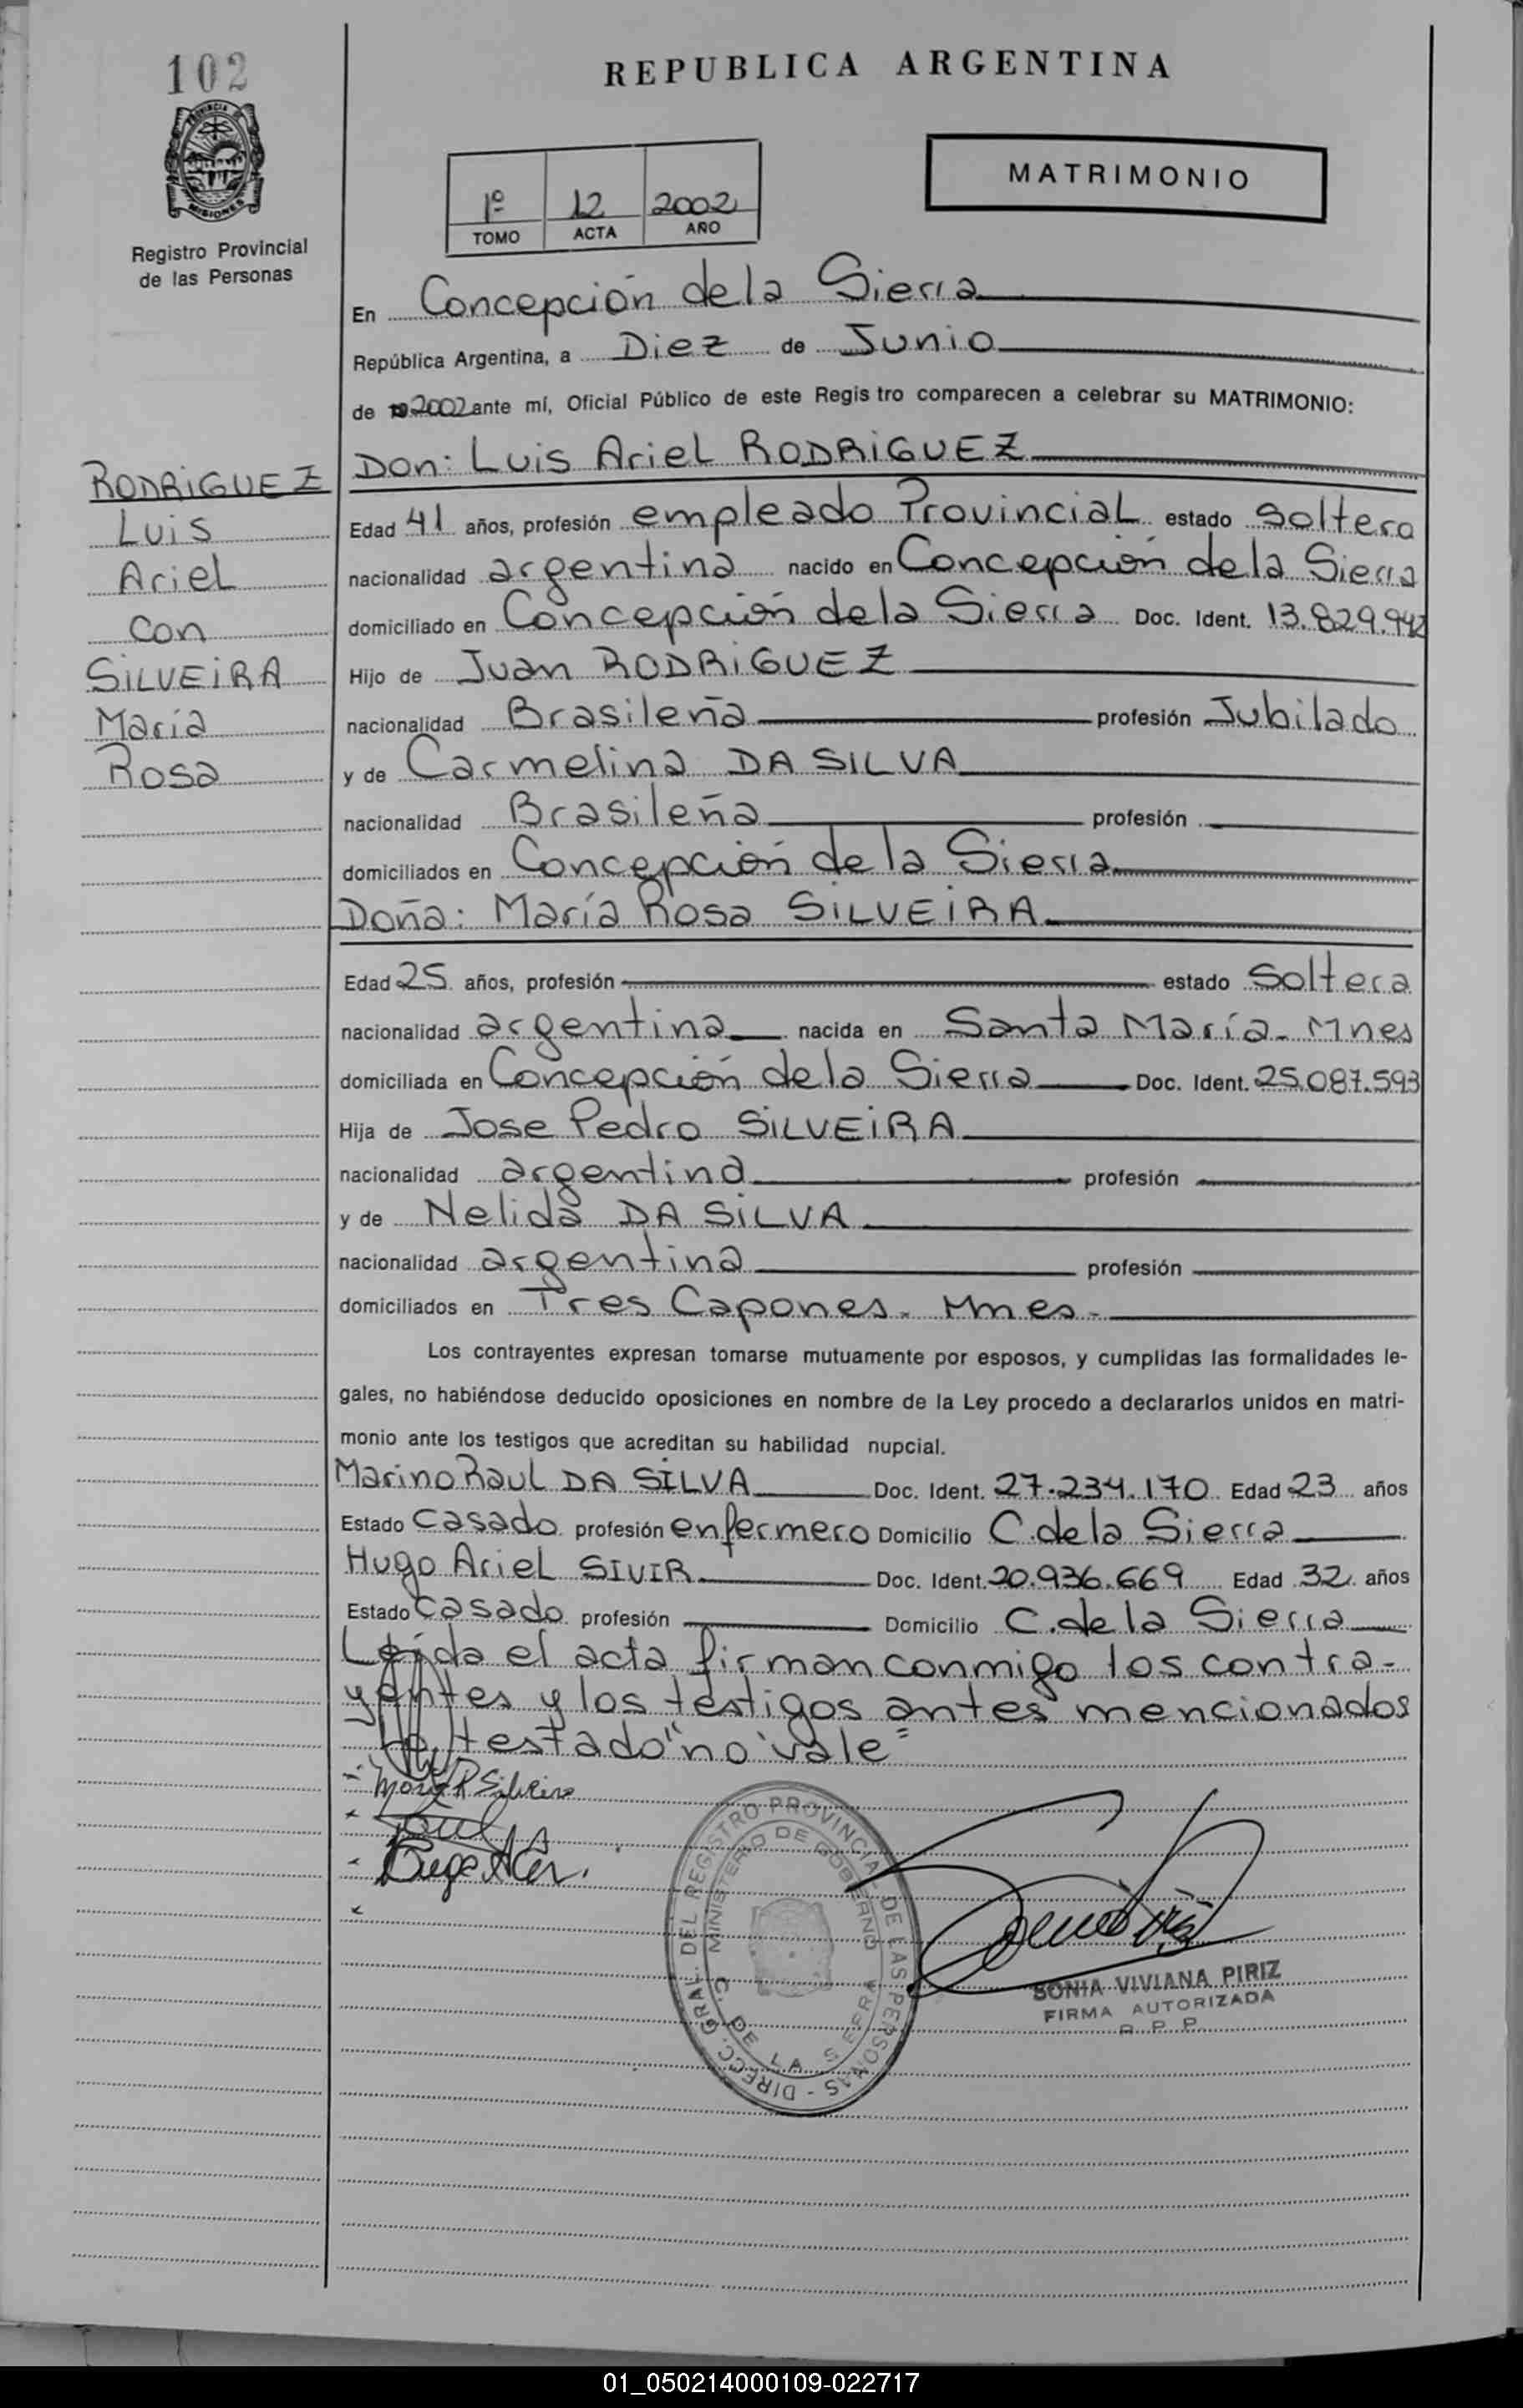 102
REPUBLICA ARGENTINA
PROVINCIA DE
MISIONES
Registro Provincial
de las Personas
1º 12 2002
TOMO ACTA AÑO
MATRIMONIO
En Concepción de la Sierra
República Argentina, a Diez de Junio
de 2002 ante mí, Oficial Público de este Regis tro comparecen a celebrar su MATRIMONIO:
RODRIGUEZ
Luis
Ariel
con
SILVEIRA
María
Rosa
Don: Luis Ariel RODRIGUEZ
Edad 41 años, profesión empleado Provincial estado Soltero
nacionalidad argentina nacido en Concepción de la Sierra
domiciliado en Concepción de la Sierra Doc. Ident. 13.829.942
Hijo de Juan RODRIGUEZ
nacionalidad Brasileña profesión Jubilado
y de Carmelina DA SILVA
nacionalidad Brasileña profesión
domiciliados en Concepción de la Sierra
Doña: María Rosa SILVEIRA
Edad 25 años, profesión estado Soltera
nacionalidad argentina nacida en Santa María - Mnes
domiciliada en Concepción de la Sierra Doc. Ident. 25.087.593
Hija de Jose Pedro SILVEIRA
nacionalidad argentina profesión
y de Nelida DA SILVA
nacionalidad argentina profesión
domiciliados en Tres Capones - Mnes -
Los contrayentes expresan tomarse mutuamente por esposos, y cumplidas las formalidades le-
gales, no habiéndose deducido oposiciones en nombre de la Ley procedo a declararlos unidos en matri-
monio ante los testigos que acreditan su habilidad nupcial.
Marino Raul DA SILVA Doc. Ident. 27.234.170 Edad 23 años
Estado Casado profesión enfermero Domicilio C. de la Sierra
Hugo Ariel SIVIR Doc. Ident. 20.936.669 Edad 32 años
Estado Casado profesión Domicilio C. de la Sierra
Leída el acta firman conmigo los contra-
yentes y los testigos antes mencionados
Lo testado "no vale"
Maria R Silveira
DIRECC. GRAL. DEL REGISTRO PROVINCIAL DE LAS PERSONAS -
MINISTERIO DE GOBIERNO
C. DE LA SIERRA
SONIA VIVIANA PIRIZ
FIRMA AUTORIZADA
R. P. P.
01_050214000109-022717